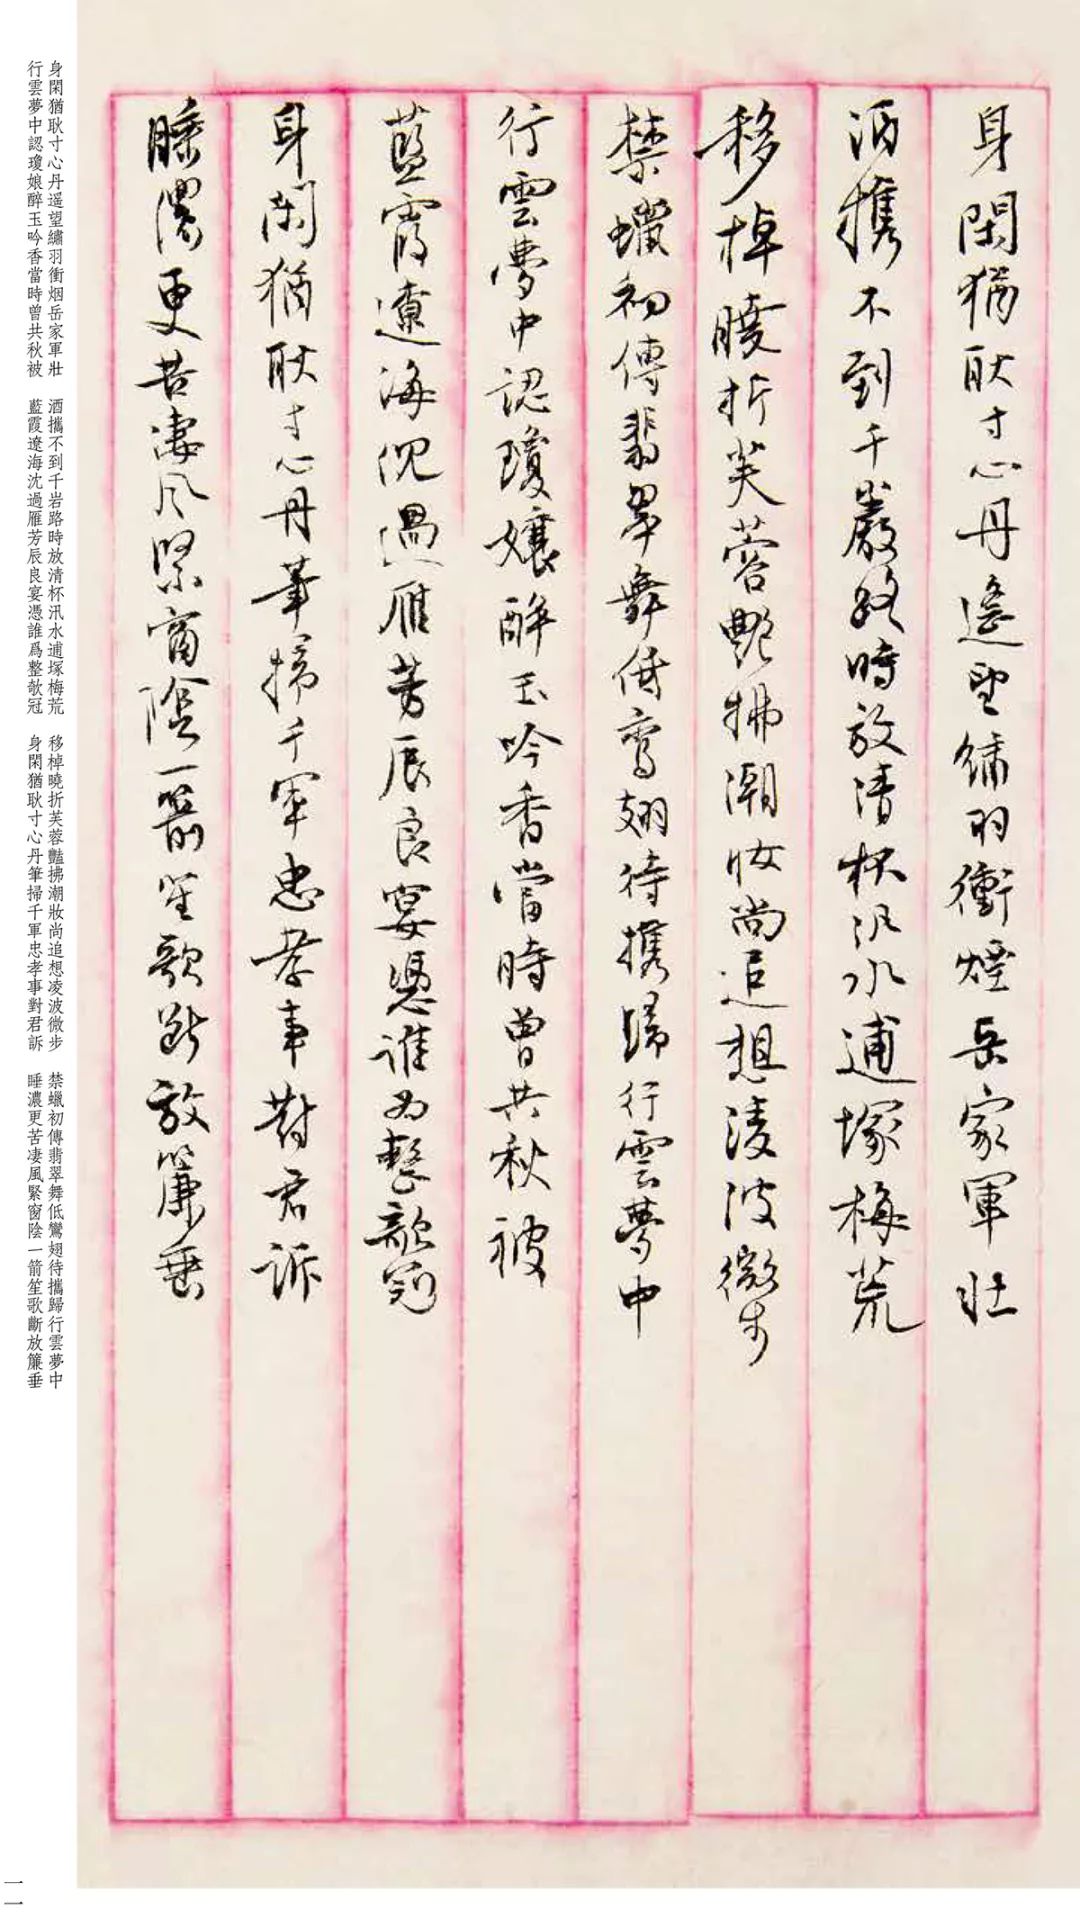 身閑猶耿寸心丹遙望繡羽衝煙岳家軍壯
酒攜不到千巖路時放清杯汎水逋塚梅荒
移棹曉折芙蓉艷拂潮妝尚追想凌波微步
禁蠟初傳翡翠舞低鸞翅待攜歸行雲夢中
行雲夢中認瓊孃醉玉吟香當時曾共秋被
藍霞遼海沈過雁芳辰良宴憑誰為整欹冠
身閑猶耿寸心丹筆掃千軍忠孝事對君訴
睡濃更苦淒風緊窗陰一箭笙歌斷放簾垂
身閑猶耿寸心丹遥望繡羽衝烟岳家軍壯　酒攜不到千岩路時放清杯汛水逋塚梅荒　移棹曉折芙蓉豔拂潮妝尚追想凌波微步　禁蠟初傳翡翠舞低鸞翅待攜歸行雲夢中
行雲夢中認瓊娘醉玉吟香當時曾共秋被　藍霞遼海沈過雁芳辰良宴憑誰爲整欹冠　身閑猶耿寸心丹筆掃千軍忠孝事對君訴　睡濃更苦凄風緊窗陰一箭笙歌斷放簾垂
一一